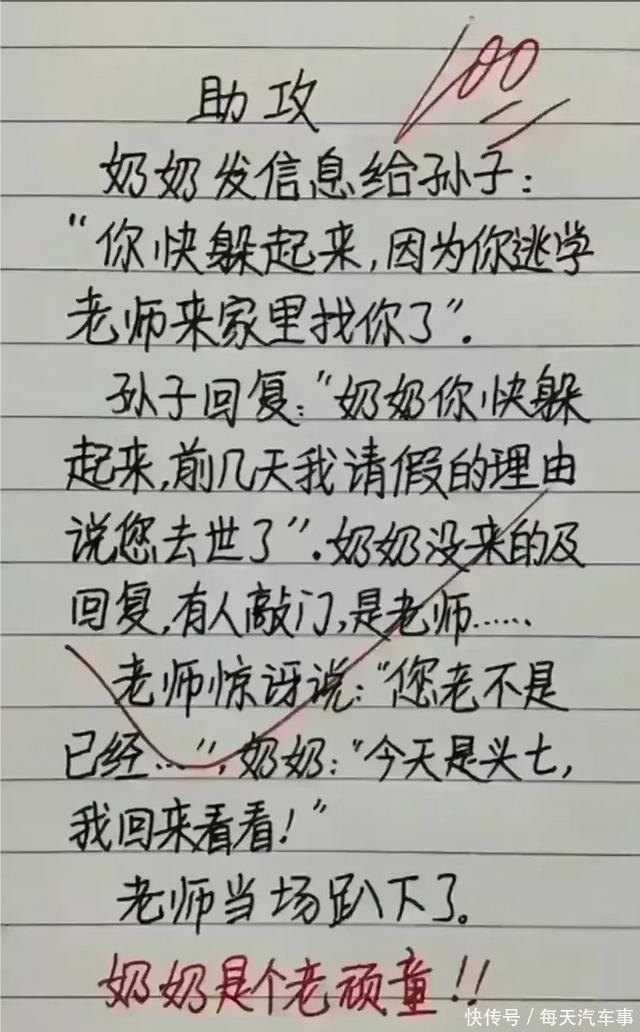 100
助攻
奶奶发信息给孙子:
“你快躲起来,因为你逃学
老师来家里找你了”.
孙子回复:“奶奶你快躲
起来,前几天我请假的理由
说您去世了”.奶奶没来的及
回复,有人敲门,是老师……
老师惊讶说:“您老不是
已经…”,奶奶:“今天是头七,
我回来看看!”
老师当场趴下了。
奶奶是个老顽童!!
快传号/每天汽车事